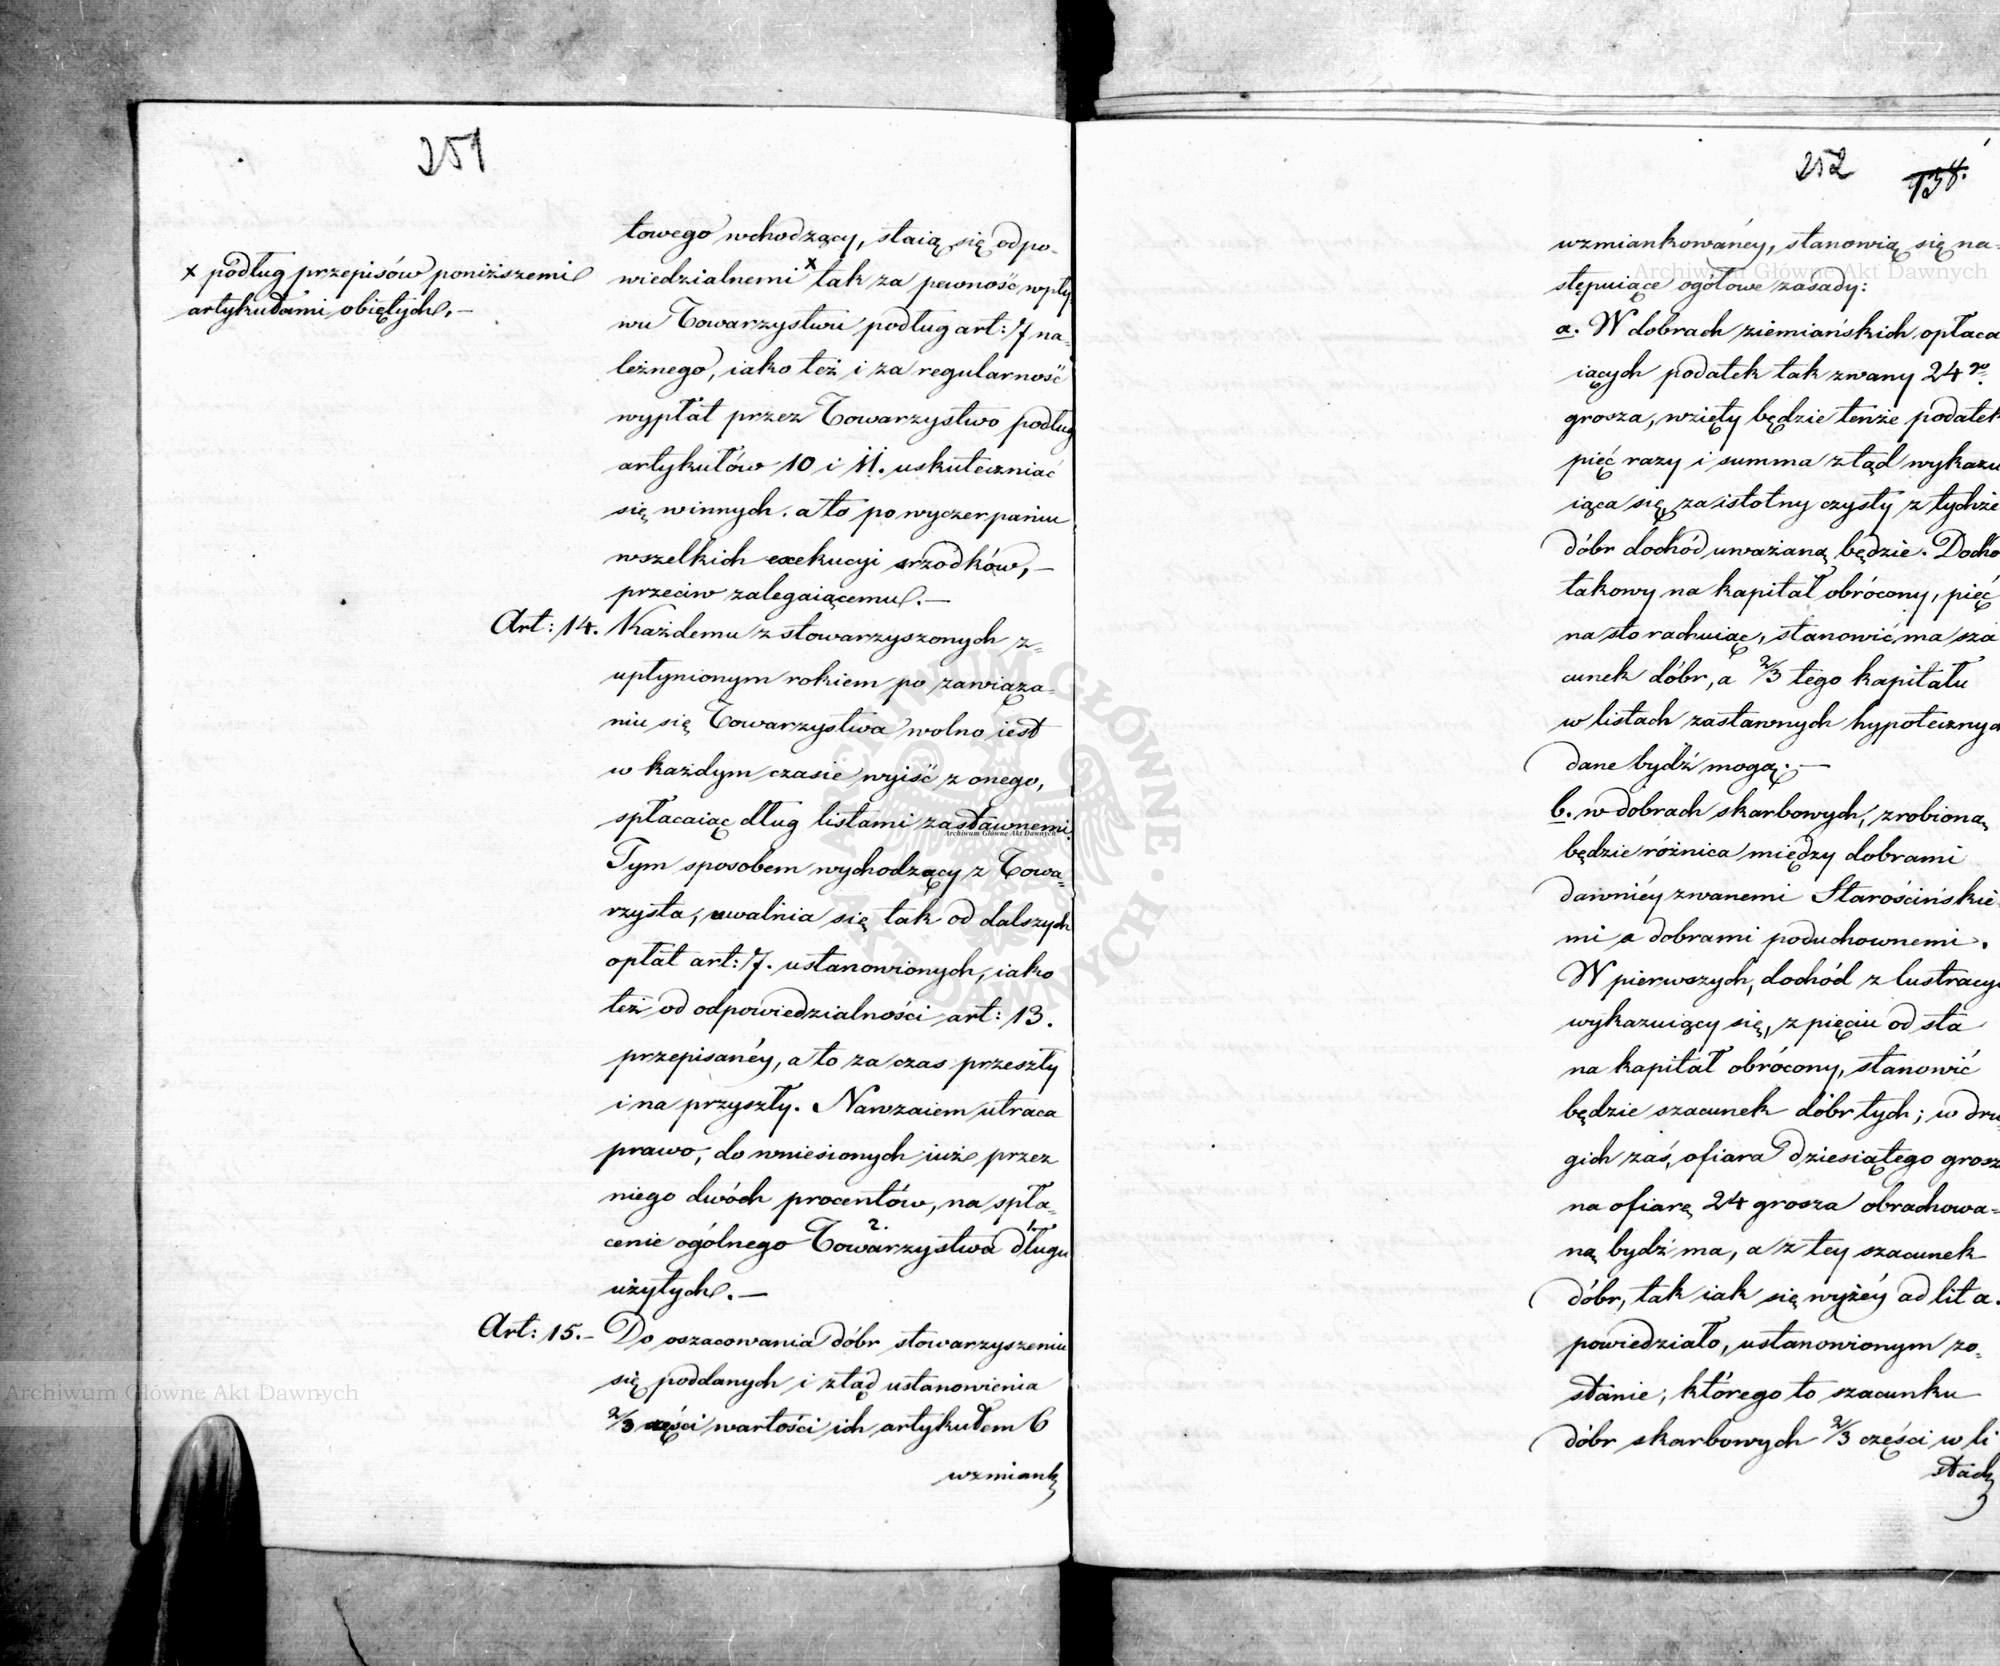 251
x podług przepisów poniższemi
artykułami obiętych. —
towego wchodzący, staią się odpo-
wiedzialnemi x tak za pewność wpły
wu Towarzystwu podług art: 7 na-
leżnego, iako też i za regularność
wypłat przez Towarzystwo podług
artykułów 10 i 11. uskuteczniać
się winnych. a to po wyczerpaniu
wszelkich exekucyi srzodków, —
przeciw zalegaiącemu. —
Art: 14. Każdemu z stowarzyszonych z-
upłynionym rokiem po zawiąza-
niu się Towarzystwa wolno iest
w każdym czasie wyiść z onego,
spłacaiąc dług listami zastawnemi.
Tym sposobem wychodzący z Towa-
rzysta, uwalnia się tak od dalszych
opłat art: 7. ustanowionych, iako
też od odpowiedzialności art: 13.
przepisanéy, a to za czas przeszły
i na przyszły. Nawzaiem utraca
prawo, do wniesionych iuż przez
niego dwóch procentów, na spła-
cenie ogólnego 2. Towarzystwa 1. długu
użytych. —
Art: 15. – Do oszacowania dóbr stowarzyszeniu
się poddanych i ztąd ustanowienia
2/3 części wartości ich artykułem 6
wzmiank
252 138.
wzmiankowanéy, stanowią się na-
stępuiące ogółowe zasady:
a. W dobrach ziemiańskich opłaca
iących podatek tak zwany 24go
grosza, wzięty będzie tenże podatek
pięć razy i summa ztąd wykazu
iąca się, za istotny czysty z tychże
dóbr dochód uważaną będzie. Docho
takowy na kapitał obrócony, pięć
na sto rachuiąc, stanowić ma sza
cunek dóbr, a 2/3 tego kapitału
w listach zastawnych hypotecznych
dane bydź mogą. —
b. w dobrach skarbowych, zrobioną
będzie różnica między dobrami
dawniéy zwanemi Starościńskie-
mi a dobrami poduchownemi.
W pierwszych, dochód z lustracyi
wykazuiący się, z pięciu od sta
na kapitał obrócony, stanowić
będzie szacunek dóbr tych; w dru-
gich zaś, ofiara dziesiątego grosz
na ofiarę 24 grosza obrachowa-
ną bydź ma, a z tey szacunek
dóbr, tak iak się wyżéy ad lit a.
powiedziało, ustanowionym zo-
stanie; którego to szacunku
dóbr skarbowych 2/3 części w li
stach
Archiwum Główne Akt Dawnych
Archiwum Główne Akt Dawnych
Archiwum Główne Akt Dawnych
ARCHIWUM GŁÓWNE · AKT DAWNYCH ·